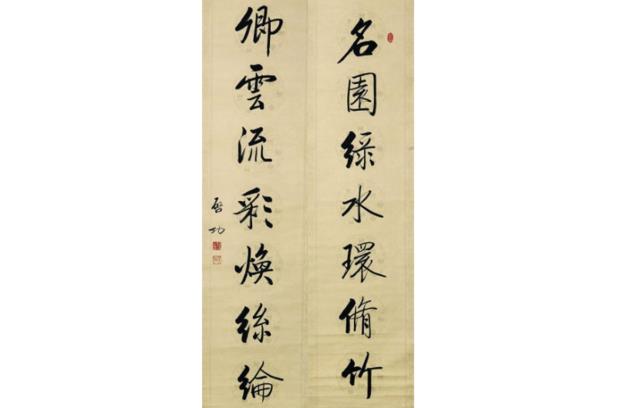 名園綠水環脩竹
卿雲流彩煥絲綸
启功